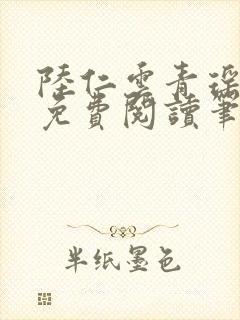 陸仁雲青瑤
免費閱讀筆
半纸墨色